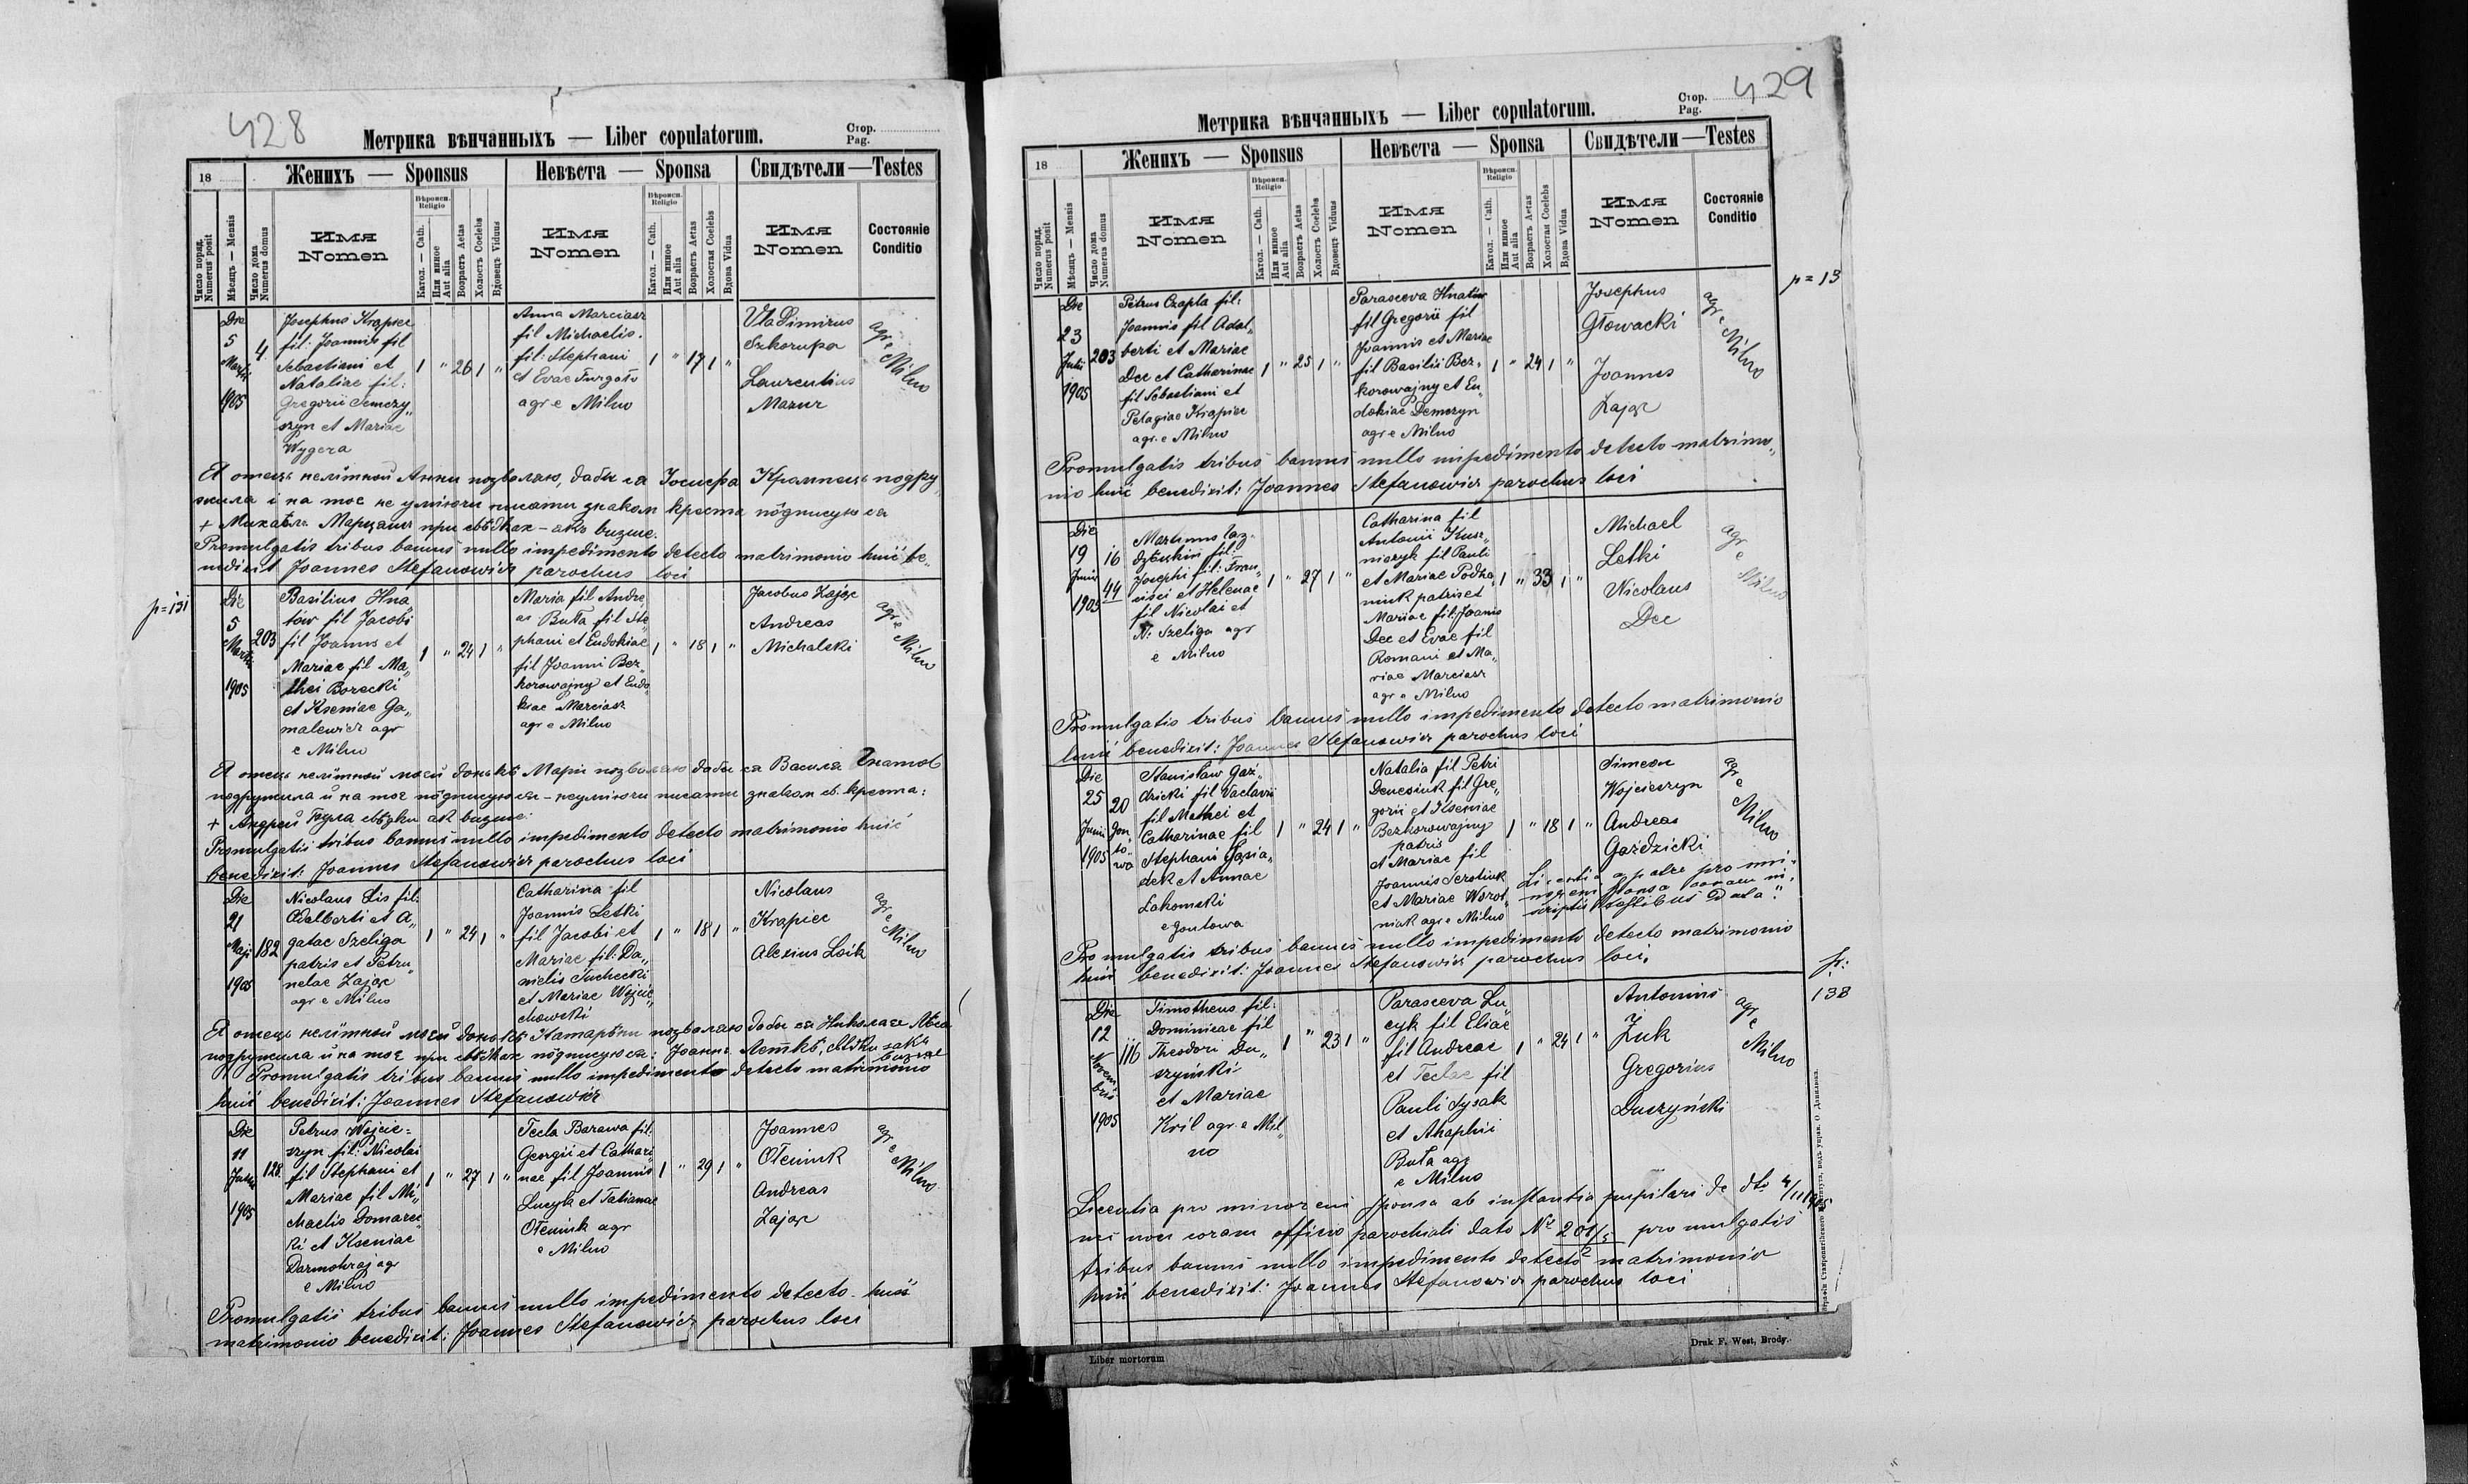 428
Метрика вѣнчанныхъ — Liber copulatorum.
Стор.
Pag.
18
Женихъ — Sponsus
Невѣста — Sponsa
Свидѣтели — Testes
Число поряд.
Numerus posit
Мѣсяцъ — Mensis
Число дома
Numerus domus
Имя
Nomen
Вѣроисп.
Religio
Катол. — Cath.
Или инное
Aut alia
Возрастъ Aetas
Холостъ Coelebs
Вдовецъ Viduus
Имя
Nomen
Вѣроисп.
Religio
Катол. — Cath.
Или инное
Aut alia
Возрастъ Aetas
Холостая Coelebs
Вдова Vidua
Имя
Nomen
Состояніе
Conditio
Die
5
Martii
1905
4
Josephus Krapiec
fil: Joannis fil
Sebastiani et
Nataliae fil:
Gregorii Semczy„
szyn et Mariae
Wygera
1 " 26 1 "
Anna Marciasz
fil Michaelis.
fil: Stephani
et Evae Turgało
agr e Milno
1 " 17 1 "
Vladimirus
Szkorupa
Laurentius
Mazur
agr e Milno
Я отець нелѣтной Анни позволяю, дабы ся Іосифа Крапець подру„
жила і на тое не умѣючи писати знаком креста подписую ся
+ Михаѣл Марцѧш при свѣдках – акъ више.
Promulgatis tribus bannis nullo impedimento detecto matrimonio huic be„
nedixit Joannes Stefanowicz parochus loci
p=131
Die
5
Martii
1905
203
Basilius Hna„
tów fil Jacobi
fil Joannis et
Mariae fil Ma„
thei Borecki
et Kseniae Ga„
malewicz agr
e Milno
1 " 24 1 "
Maria fil Andre
ae Buła fil Ste„
phani et Eudokiae
fil Joanni Bez„
korowajny et Eudo„
kiae Marciasz
agr e Milno
1 " 18 1 "
Jacobus Zając
Andreas
Michalski
agr e Milno
Я отець нелѣтной моей доньки Марiи позволяю дабы ся Василя Гнатов
подружила й на тое подписую ся – неумѣючи писати знаком св. креста:
+ Андрей Була свѣдки як више:
Promulgatis tribus bannis nullo impedimento detecto matrimonio huic
benedixit: Joannes Stefanowicz parochus loci
Die
21
Maji
1905
182
Nicolaus Lis fil:
Adalberti et A„
gatae Szeliga
patris et Petru„
nelae Zając
agr e Milno
1 " 24 1 "
Catharina fil
Joannis Letki
fil Jacobi et
Mariae fil: Da„
nielis Tuchecki
et Mariae Wojcie„
chowski
1 " 18 1 "
Nicolaus
Krapiec
Alexius Loik
agr e Milno
Я отець нелѣтной моей доньки Катарѣни позволяю дабы ся Николая Лѣса
подружила й на тое при свѣдках подписую ся: Joann Леткѣ, свѣдки якъ
више
Promulgatis tribus bannis nullo impedimento detecto matrimonio
huic benedixit: Joannes Stefanowicz
Die
11
Junii
1905
128
Petrus Wojcie=
szyn fil: Nicolai
fil Stephani et
Mariae fil Mi„
chaelis Domarec„
ki et Kseniae
Darmohraj agr
e Milno
1 " 27 1 "
Tecla Barawa fil:
Georgii et Cathari„
nae fil Joannis
Lucyk et Tatianae
Oleniuk agr
e Milno
1 " 29 1 "
Joannes
Oleniuk
Andreas
Zając
agr e Milno
Promulgatis tribus bannis nullo impedimento detecto huic
matrimonio benedixit: Joannes Stefanowicz parochus loci
429
Метрика вѣнчанныхъ — Liber copulatorum.
Стор.
Pag.
18
Женихъ — Sponsus
Невѣста — Sponsa
Свидѣтели — Testes
Число поряд.
Numerus posit
Мѣсяцъ — Mensis
Число дома
Numerus domus
Имя
Nomen
Вѣроисп.
Religio
Катол. — Cath.
Или инное
Aut alia
Возрастъ Aetas
Холостъ Coelebs
Вдовецъ Viduus
Имя
Nomen
Вѣроисп.
Religio
Катол. — Cath.
Или инное
Aut alia
Возрастъ Aetas
Холостая Coelebs
Вдова Viduus
Имя
Nomen
Состояніе
Conditio
p=13
Die
23
1905
203
Petrus Czapla fil:
Joannis fil Adal„
berti et Mariae
Dec et Catharinae
fil Sebastiani et
Pelagiae Krapiec
agr. e Milno
1 " 25 1 "
Parasceva Hnatów
fil Gregorii fil
Joannis et Mariae
fil Basilii Bez„
korowajny et Eu„
dokiae Demczyn
agr e Milno
1 " 24 1 "
Josephus
Głowacki
Joannes
Zając
agr e Milno
Promulgatis tribus bannis nullo impedimento detecto matrimo„
nio huic benedixit: Joannes Stefanowicz parochus loci
Die
19
Junii
1905
16
44
Martinus
fil:
Josephi fil: Fran„
cisci et Helenae
fil Nicolai et
N: Szeliga agr
e Milno
1 " 27 1 "
Catharina fil
Antonii Kusz„
niczyk fil Pauli
et Mariae
patris et
Mariae fil: Joannis
Dec et Evae fil
Romani et Ma„
riae Marciasz
agr e Milno
1 " 33 1 "
Michael
Letki
Nicolaus
Dec
agr e Milno
Promulgatis tribus bannis nullo impedimento detecto matrimonio
huic benedixit: Joannes Stefanowicz parochus loci
Die
25
Junii
1905
20
Gon„
to„
wa
Stanisław Gaź„
dzicki fil Vaclavii
fil Mathei et
Catharinae fil
Stephani Gąsia„
dek et Annae
Łakomski
e Gontowa
1 " 24 1 "
Natalia fil Petri
Denesiuk fil Gre„
gorii et Kseniae
Bezkorowajny
patris
et Mariae fil
Joannis Serotiuk
et Mariae Worot„
niak agr e Milno
1 " 18 1 "
Simeon
Wojcieszyn
Andreas
Gaździcki
agr e Milno
Licentia a patre pro mi„
noreni sponsa coram in„
scriptis testibus data.
Promulgatis tribus bannis nullo impedimento detecto matrimonio
huic benedixit: Joannes Stefanowicz parochus loci.
138
Die
12
Novem„
bris
1905
116
Timotheus fil:
Dominicae fil
Theodori Du„
szyński
et Mariae
Kril agr. e Mil„
no
1 " 23 1 "
Parasceva Lu„
cyk fil Eliae
fil Andreae
et Teclae fil
Pauli Sysak
et Ahaphii
Buła agr
e Milno
1 " 24 1 "
Antonius
Żuk
Gregorius
Duszyński
agr e Milno
Licentia pro minoreni sponsa ab instantia pupilari de dto 4/11 1905
officio parochiali dato No 201/5 promulgatis
2
tribus bannis nullo impedimento detecto matrimonio
huic benedixit: Joannes Stefanowicz parochus loci
Liber mortorum
Druk F. West, Brody.